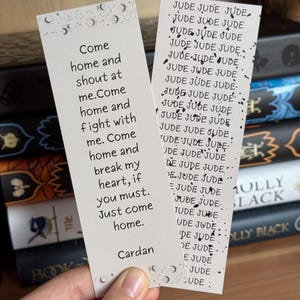 Come
home and
shout at
me.Come
home and
fight with
me. Come
home and
break my
heart, if
you must.
Just come
home.
Cardan
JUDE JUDE JUDE
JUDE JUDE JUDE
JUDE JUDE JUDE
JUDE JUDE JUDE
JUDE JUDE JUDE
JUDE JUDE JUDE
JUDE JUDE JUDE
JUDE JUDE JUDE
JUDE JUDE JUDE
JUDE JUDE JUDE
JUDE JUDE JUDE
JUDE JUDE
JUDE JUDE
JUDE JUDE
JUDE JUDE
JUDE JUDE
JUDE JUDE
JUDE JUDE
JUDE JUDE
JUDE
JUDE
HOLLY
BLACK
HOLLY BLACK
BOOK